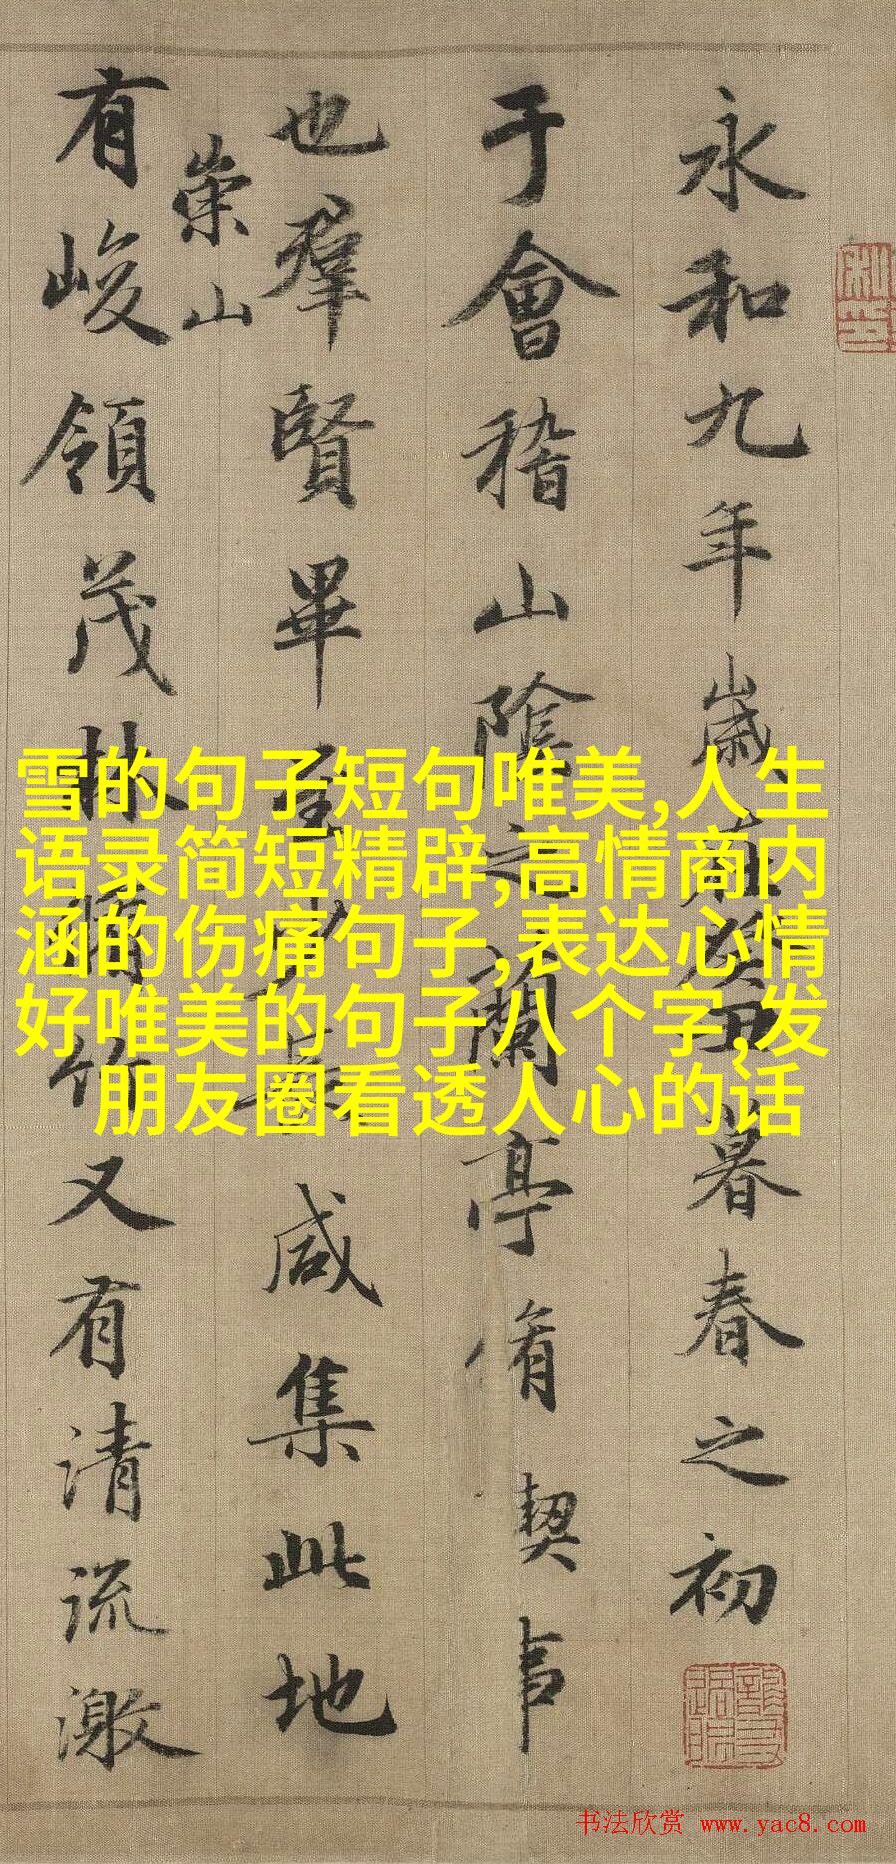 永和九年歲在癸丑暮春之初
于會稽山陰之蘭亭脩契事
也羣賢畢至少長咸集此地
崇山
有峻領茂林脩竹又有清流激
雪的句子短句唯美,人生
语录简短精辟,高情商内
涵的伤痛句子,表达心情
好唯美的句子八个字,发
朋友圈看透人心的话
书法欣赏 www.yac8.com